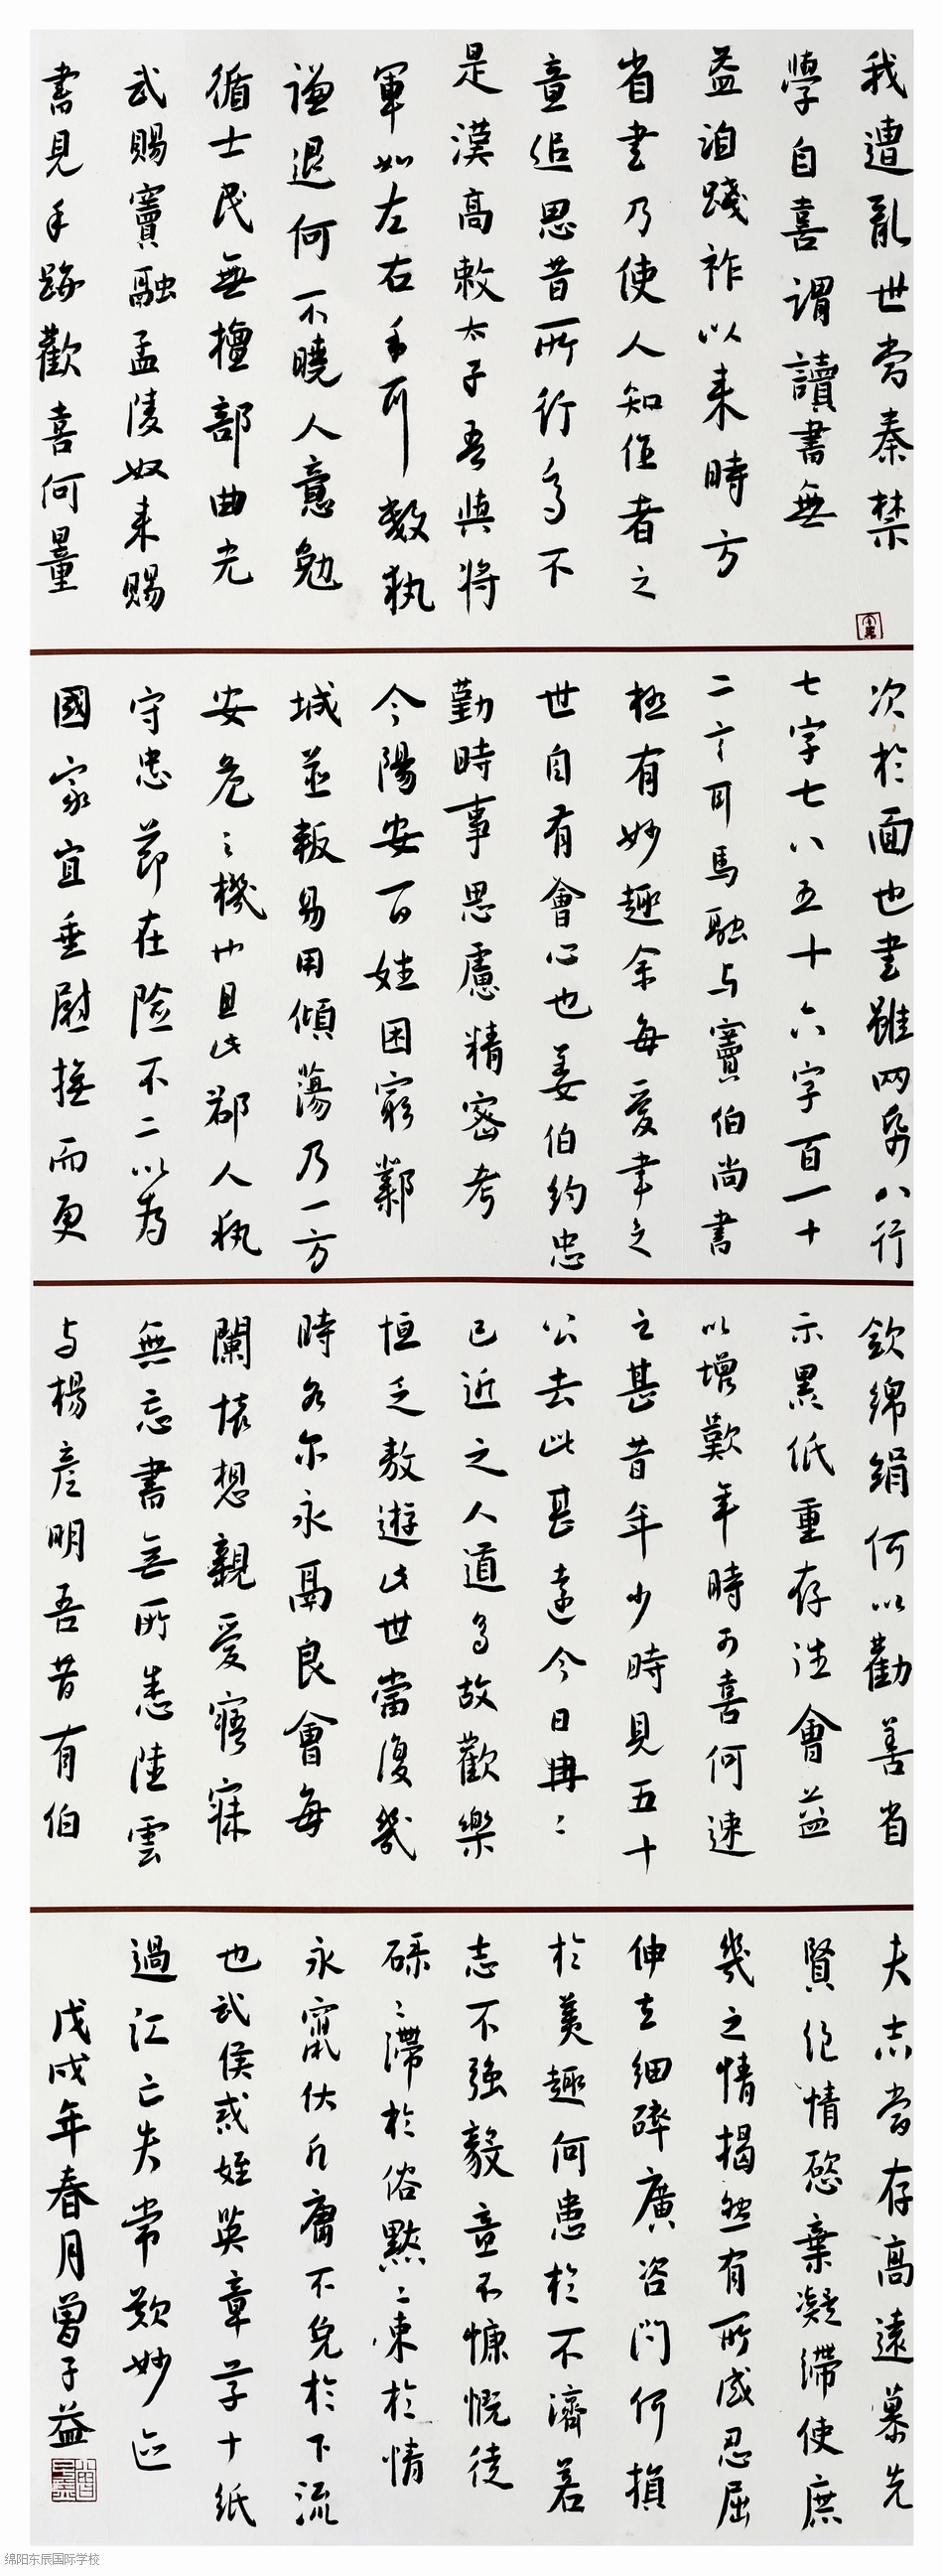 我遭亂世當秦禁
學自喜謂讀書無
益洎踐祚以來時方
省書乃使人知作者之
意追思昔所行多不
是漢高敕太子吾與將
軍如左右手耳數執
謙退何不曉人意勉
循士民無擅部曲光
武賜竇融孟陵奴來賜
書見手跡歡喜何量
次於面也書雖兩紙八行
七字七八五十六字百一十
二言耳馬融与竇伯尚書
極有妙趣余每愛書之
世自有會心也姜伯約忠
勤時事思慮精密考
今陽安百姓困窮鄰
城並叛易用傾蕩乃一方
安危之機也且此郡人執
守忠節在险不二以為
國家宜垂慰撫而更
欽綿絹何以勸善省
示累紙重存往會益
以增歎年時可喜何速
之甚昔年少時見五十
公去此甚遠今日冉冉
已近之人道多故歡樂
恒乏敖遊此世當復幾
時各尔永鬲良會每
闌懷想親愛寤寐
無忘書無所悉陸雲
与楊彥明吾昔有伯
夫志當存高遠慕先
賢絕情慾棄凝滯使庶
幾之情揭然有所感忍屈
伸去細碎廣咨問何損
於美趣何患於不濟若
志不強毅意不慷慨徒
碌碌滯於俗黙黙束於情
永竄伏凡庸不免於下流
也武侯誡姪英章草十紙
過江亡失常歎妙迹
戊戌年春月曾子益
绵阳东辰国际学校